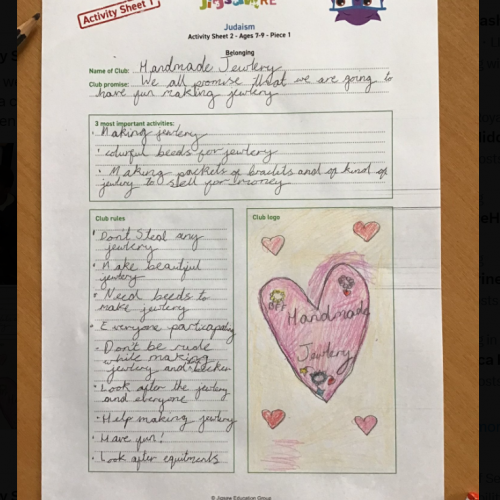 Activity Sheet 1
jigsaw RE
Judaism
Activity Sheet 2 - Ages 7-9 - Piece 1
Belonging
Name of Club: Handmade Jewlery
Club promise: We all promise that we are going to
have fun making jewlery
3 most important activities:
• Making jewlery
• colurful beeds for jewlery
• Making packets of braclits and of kind of
jewlery to sell for money
Club rules
• Don't Steal any
jewlery
• Make beautiful
jewlery
• Need beeds to
make jewlery
• Everyone participating
• Don't be rude
while making
jewlery and
• Look after the jewlery
and everyone
• Help making jewlery
• Have fun!
• Look after equitments
Club logo
Handmade
Jewlery
© Jigsaw Education Group